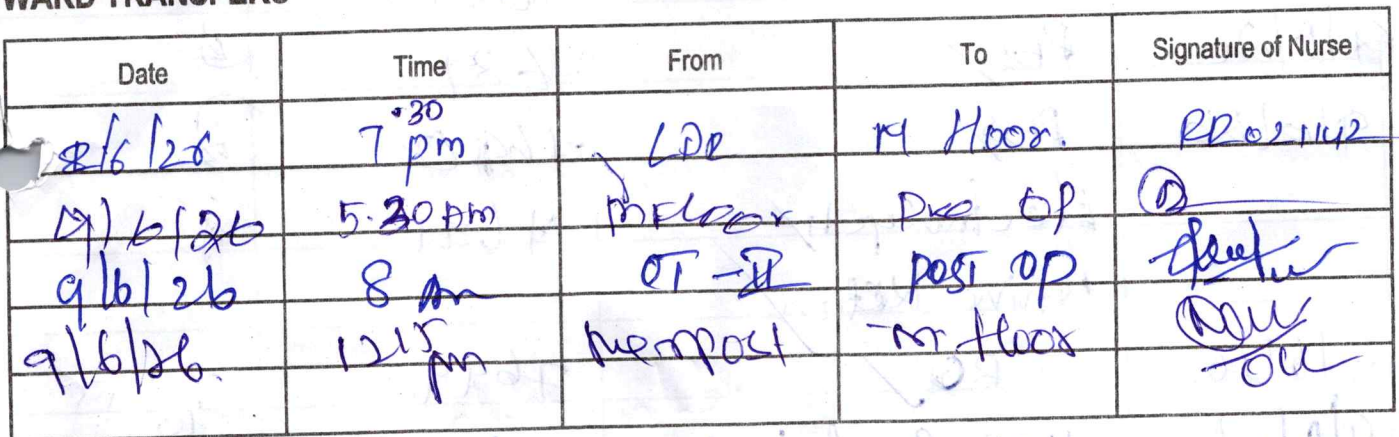 WARD TRANSFERS
Date Time From To Signature of Nurse
8/6/26 7.30 pm LDR M Floor. RR021142
9/6/26 5.30 Am M Floor Pre OP
9/6/26 8 Am OT-II post OP
9/6/26. 12 15 pm post M floor